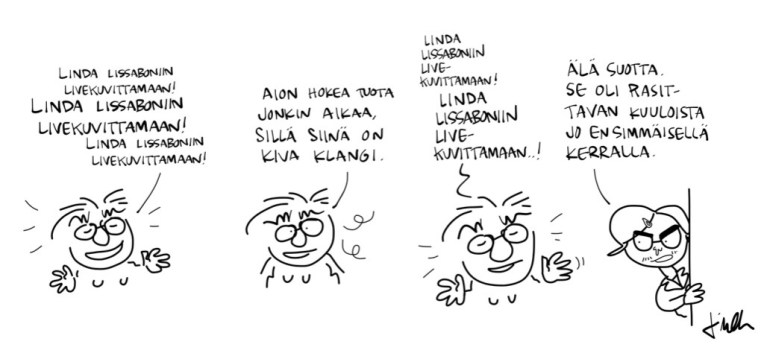 LINDA LISSABONIIN
LIVEKUVITTAMAAN!
LINDA LISSABONIIN
LIVEKUVITTAMAAN!
LINDA LISSABONIIN
LIVEKUVITTAMAAN!
AION HOKEA TUOTA
JONKIN AIKAA,
SILLÄ SIINÄ ON
KIVA KLANGI.
LINDA
LISSABONIIN
LIVE-
KUVITTAMAAN!
LINDA
LISSABONIIN
LIVE-
KUVITTAMAAN..!
ÄLÄ SUOTTA.
SE OLI RASIT-
TAVAN KUULOISTA
JO ENSIMMÄISELLÄ
KERRALLA.